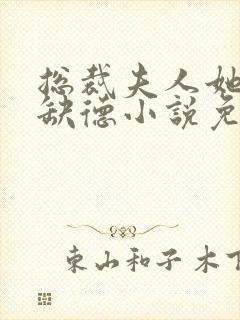 总裁夫人她
缺德小説免
東山和子木下